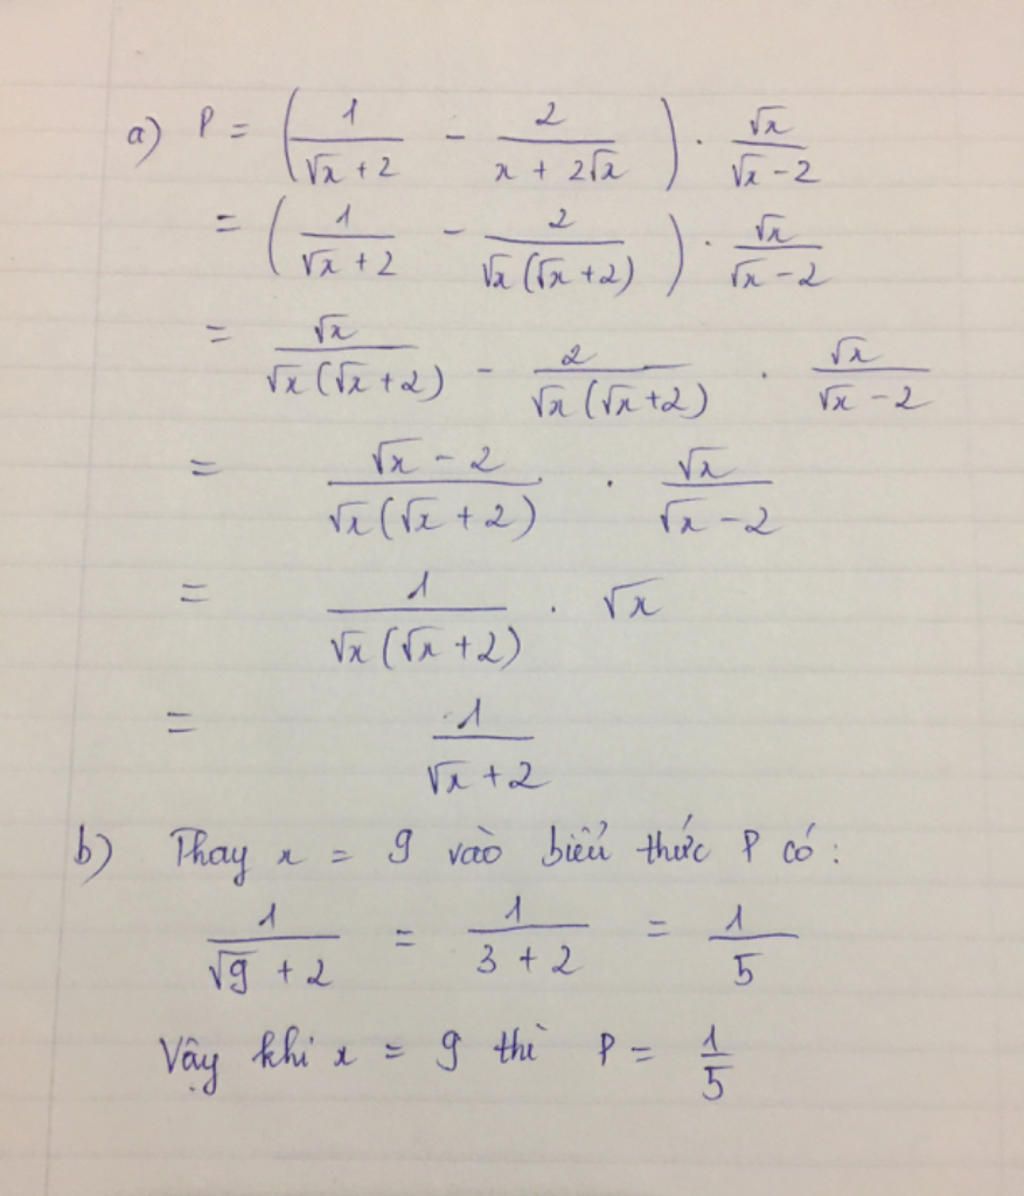 a) P = (1/(√x + 2) - 2/(x + 2√x)) . √x/(√x - 2)
= (1/(√x + 2) - 2/(√x(√x + 2))) . √x/(√x - 2)
= √x/(√x(√x + 2)) - 2/(√x(√x + 2)) . √x/(√x - 2)
= (√x - 2)/(√x(√x + 2)) . √x/(√x - 2)
= 1/(√x(√x + 2)) . √x
= 1/(√x + 2)
b) Thay x = 9 vào biểu thức P có :
1/(√9 + 2) = 1/(3 + 2) = 1/5
Vậy khi x = 9 thì P = 1/5